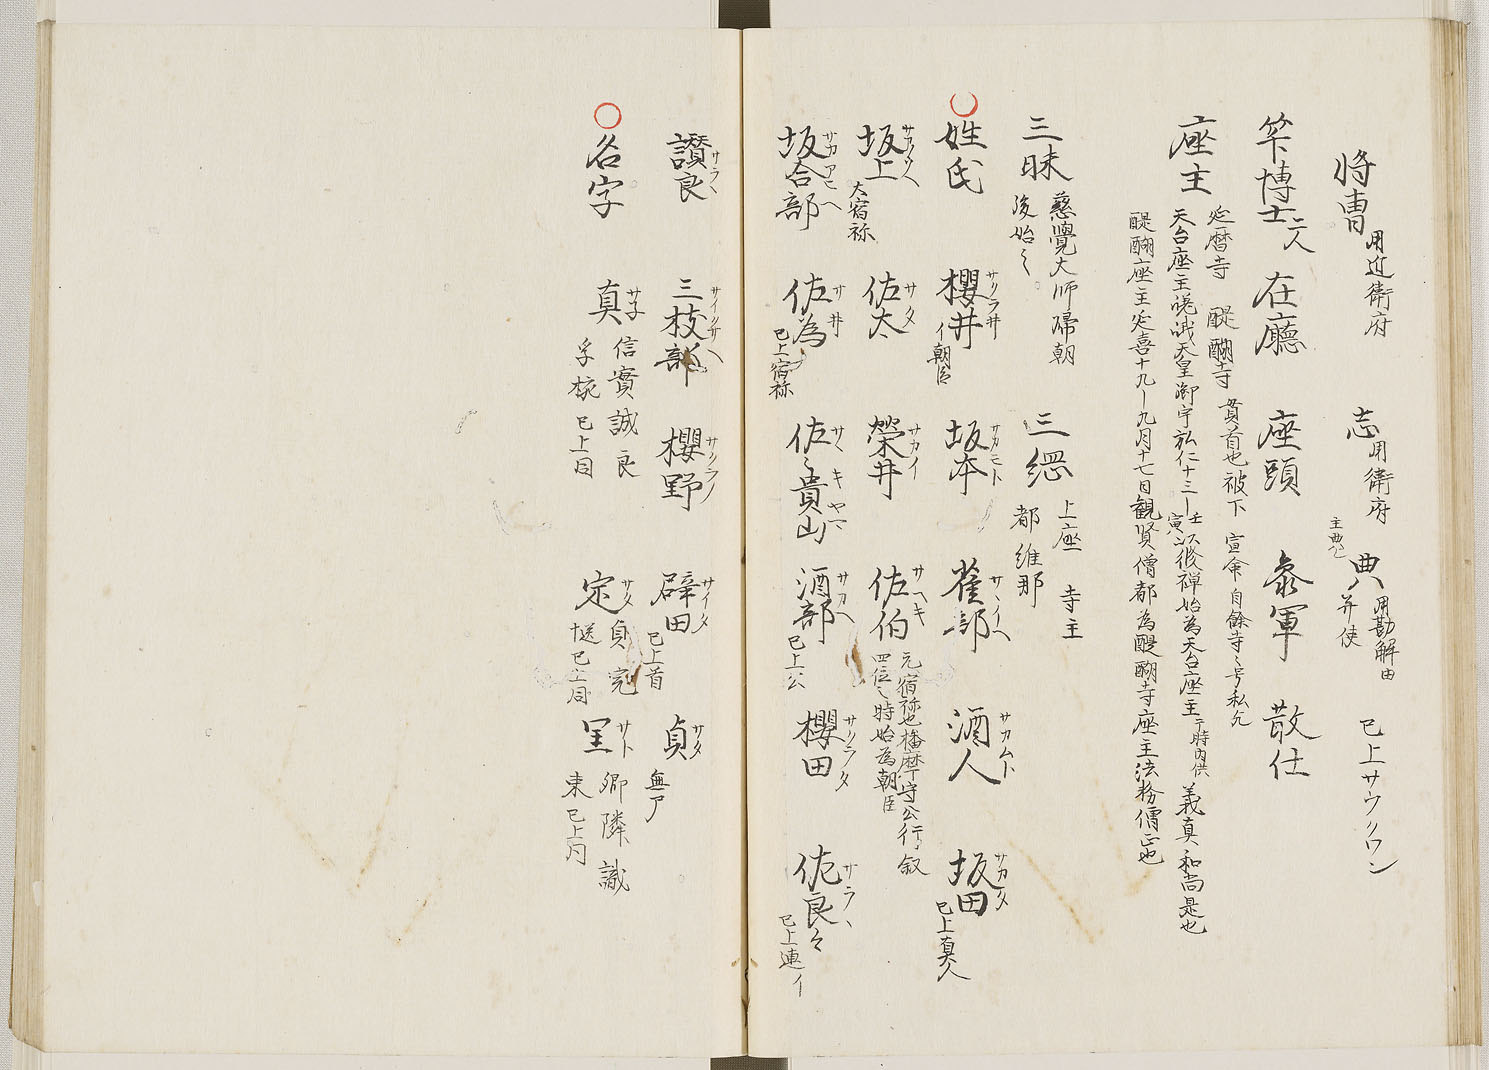 将曹 用近衛府 志 用衛府 典 主典也 用勘解由并使 已上サウクワン
竿博士二人 在廳 座頭 参軍 散仕
座主 延暦寺 醍醐寺 貫首也被下 宣命自餘寺〻号私允
天台座主嵯峨天皇御宇弘仁十三ー壬寅以後禅始為天台座主于時内供 義真和尚是也
醍醐座主延喜十九ー九月十七日観賢僧都為醍醐寺座主法務僧正也
三昧 慈覺大師帰朝後始之 三綱 上座 寺主 都維那
○姓氏 櫻井サクラ井 イ朝臣 坂本サカモト 雀部サヽイヘ 酒人サカムト 坂田サカタ 已上真人
坂上サカノウヘ 大宿祢 佐太サタ 榮井サカイ 佐伯サヘキ 元宿祢也播磨守公行叙四位之時始為朝臣
坂合部サカアヒヘ 佐為サ井 已上宿祢 佐〻貴山サヽキヤマ 酒部サカヘ 已上公 櫻田サクラタ 佐良〻サラヽ 已上連イ
讃良サラヽ 三枝部サイクサヘ 櫻野サクラノ 辟田サイタ 已上首 貞サタ 無尸
○名字 真サネ 信實誠良孚 已上同 定サタ 貞完 已上同 里サト 卿隣識東 已上同